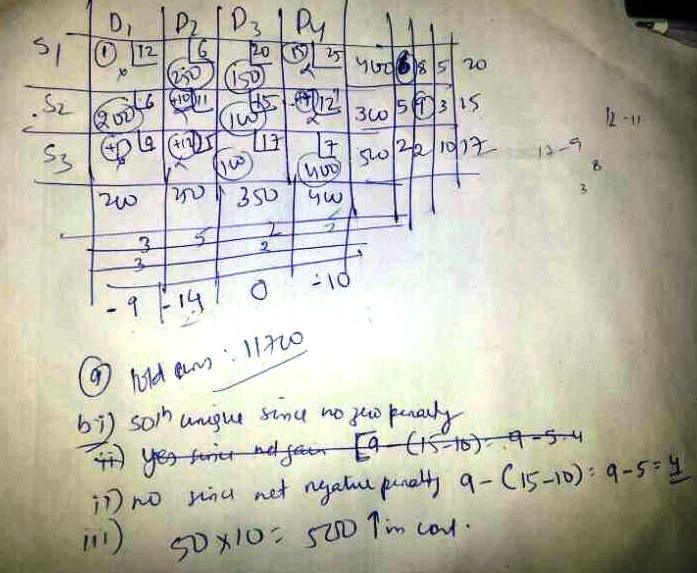 D1 D2 D3 D4
S1 1 12 6 250 20 150 15 25 400 6 8 5 20
S2 200 6 +10 11 100 15 12 300 5 9 3 15
12-11
S3 9 +12 5 100 17 7 400 500 2 2 10 17
17-9
8
3
200 250 350 400
3 5 2 2
3 2
-9 -14 0 -10
a) Total ans: 11720
b i) soln unique since no zero penalty
ii) yes since net gain [9-(15-10): 9-5=4
ii) no since net negative penalty 9-(15-10): 9-5=4
iii) 50x10= 500 ↑ in cost.